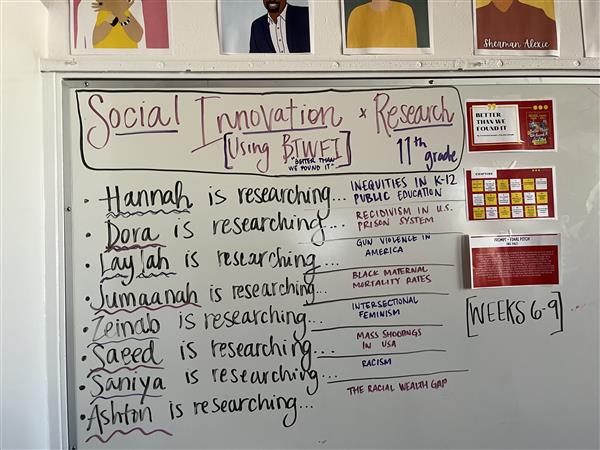 Sherman Alexie
Social Innovation x Research
[Using BTWFI] 11th grade
"BETTER THAN
WE FOUND IT"
• Hannah is researching... INEQUITIES IN K-12
PUBLIC EDUCATION
• Dora is researching... RECIDIVISM IN U.S.
PRISON SYSTEM
• Laylah is researching... GUN VIOLENCE IN
AMERICA
• Jumaanah is researching... BLACK MATERNAL
MORTALITY RATES
• Zeinab is researching... INTERSECTIONAL
FEMINISM
• Saeed is researching... MASS SHOOTINGS
IN USA
• Saniya is researching... RACISM
• Ashton is researching... THE RACIAL WEALTH GAP
BETTER
THAN WE
FOUND IT
CHAPTERS
PROMPT + FINAL PITCH
[WEEKS 6-9]